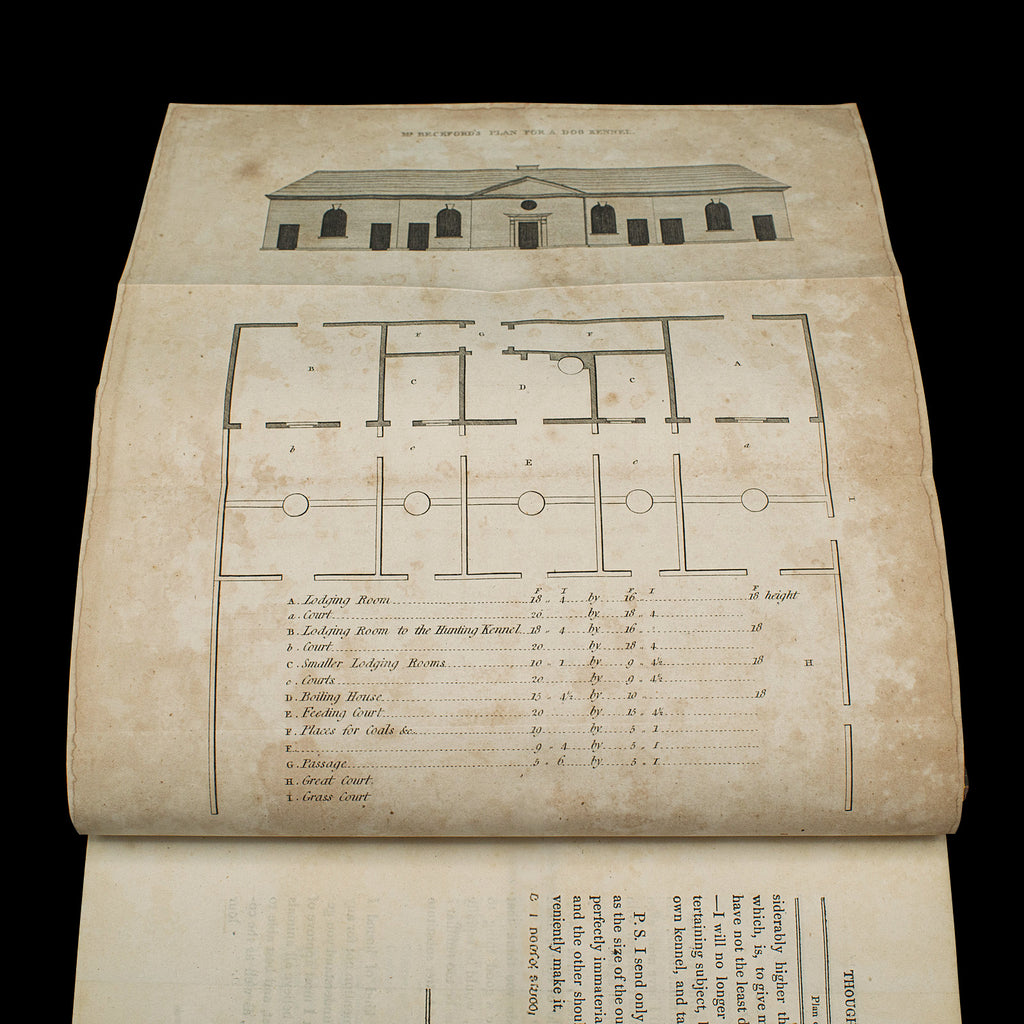 Mr. BECKFORD'S PLAN FOR A DOG KENNEL.
F G F
B A
C D C
b c E c a
I
F. I. F. I. F.
A. Lodging Room 18 .. 4 by 16 18 height
a. Court 20 by 18 .. 4
B. Lodging Room to the Hunting Kennel 18 .. 4 by 16 .. 18
b. Court 20 by 18 .. 4
C. Smaller Lodging Rooms 10 .. 1 by 9 .. 4½ 18
c. Courts 20 by 9 .. 4½
D. Boiling House 15 .. 4½ by 10 .. 18
E. Feeding Court 20 by 15 .. 4½
F. Places for Coals &c. 19 by 5 .. 1
F. 9 .. 4 by 5 .. 1
G. Passage 5 .. 6 by 5 .. 1
H. Great Court
I. Grass Court
H
THOUGH
Plan
siderably higher th
which, is, to give m
have not the least d
—I will no longer
tertaining subject,
own kennel, and ta
P. S. I send only
as the size of the ou
perfectly immateria
and the other shou
veniently make it.